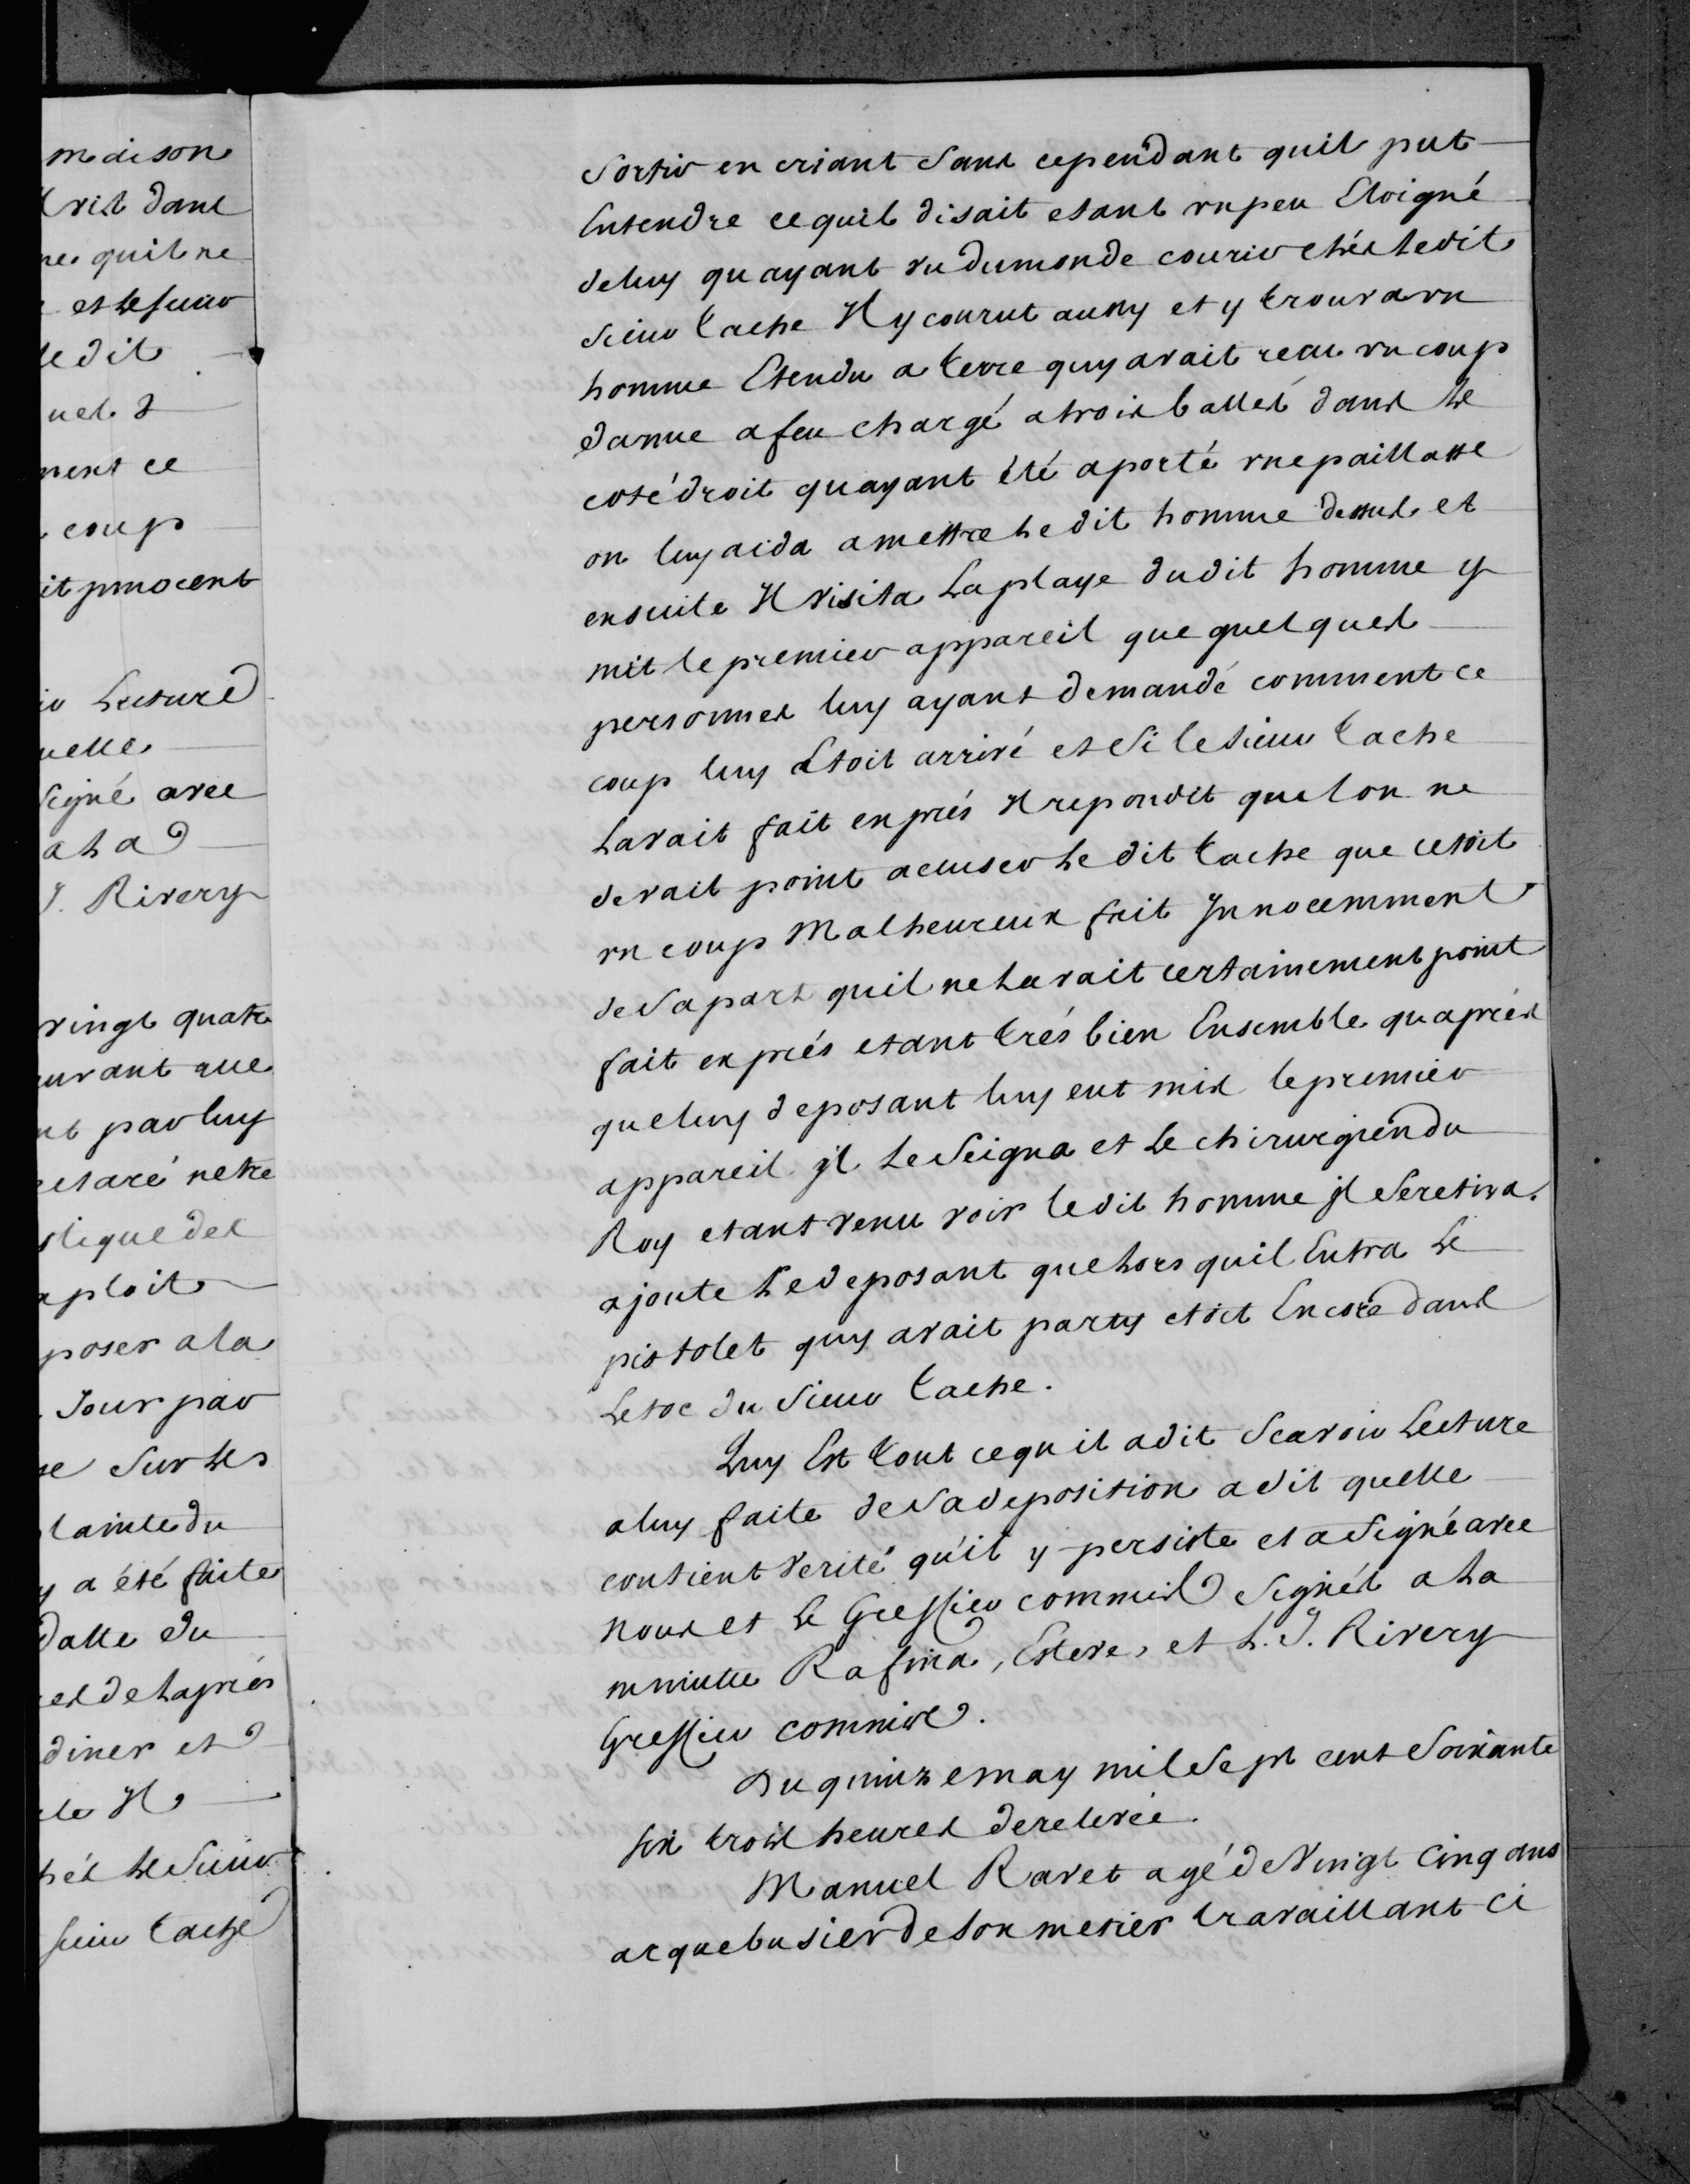 maison
vit dans
nes quil ne
et le sieur
ledit
uel
ment ce
coup
it jnnocent
Lecture
uelle
signé avec
a la
J. Rivery
vingt quatre
par luy
claré netre
des
poser a la
Jour par
sur les
plainte du
y a été faite
datte du
de lapres
diner et
il
chés le Sieur
sieur Cache
Sortir en criant sans cependant quil put
Entendre ce quil disait etant un peu Eloigné
de luy qu ayant vu du monde courir chés ledit
sieur Cache Il y courut aussy et y trouva un
homme Etendu a terre quy avait recu un coup
darme a feu chargé a trois balles dans le
coté droit quayant été aporté une paillasse
on luy aida a mettre ledit homme dessus et
ensuite Il visita la playe dudit homme y
mit le premier appareil que quelques
personnes luy ayant demandé comment ce
coup luy Etoit arrivé et si le sieur Cache
lavait fait exprés Il repondit que lon ne
devait point accuser le dit Cache que cetoit
un coup Malheureux fait Jnnocemment
de sa part quil ne lavait certainement point
fait exprés etant trés bien Ensemble qu après
que luy deposant luy eut mis le premier
appareil jl le seigna et le chirurgien du
Roy etant venu voir ledit homme jl se retira.
ajoute le deposant que lors quil Entra le
pistolet quy avait party etoit Encore dans
Letoc du Sieur Cache.
Quy Est tout ce qu il a dit scavoir Lecture
a luy faite de sa deposition a dit quelle
contient verité qu'il y persiste et a signé avec
nous et le Greffier commis Signés a la
minutte Rafina, Esteve, et L. J. Rivery
Greffier commis.
Du quinze may mil sept cent soixante
six trois heures de relevée.
Manuel Ravet agé de Vingt Cinq ans
arquebusier de son metier travaillant ci